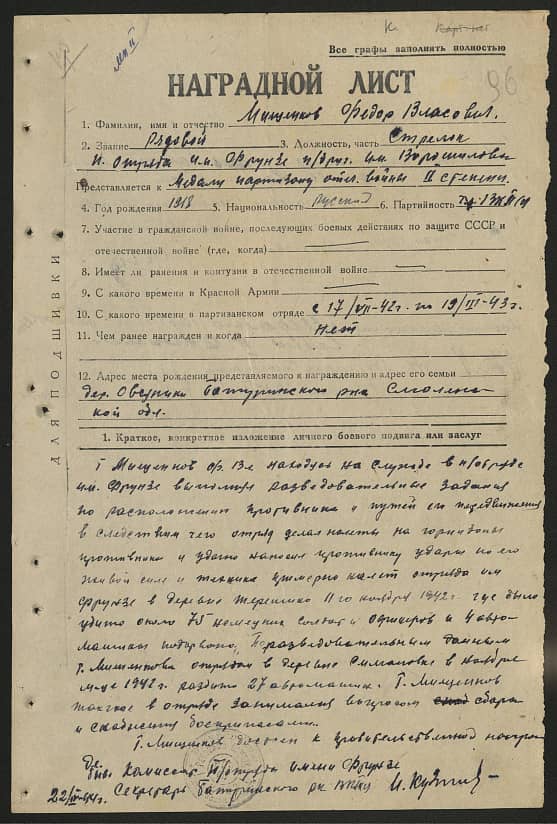 Все графы заполнять полностью
96
НАГРАДНОЙ ЛИСТ
1. Фамилия, имя и отчество Мищенков Федор Власович.
2. Звание Рядовой 3. Должность, часть Стрелок
п. отряда им. Фрунзе п/бриг. им. Ворошилова
Представляется к Медали партизану отеч. войны II степени.
4. Год рождения 1918 5. Национальность русский 6. Партийность
7. Участие в гражданской войне, последующих боевых действиях по защите СССР и
отечественной войне (где, когда)
8. Имеет ли ранения и контузии в отечественной войне
9. С какого времени в Красной Армии
10. С какого времени в партизанском отряде с 17/VII-42г. по 19/III-43г.
11. Чем ранее награжден и когда нет
12. Адрес места рождения представляемого к награждению и адрес его семьи
дер. Батуринского р-на Смолен-
кой обл.
ДЛЯ ПОДШИВКИ
1. Краткое, конкретное изложение личного боевого подвига или заслуг
Т. Мищенков находясь на службе в п/отряде
им. Фрунзе выполнял разведовательные задания
по расположению противника и путей его передвижения
в следствии чего отряд делал налеты на горнизоны
противника и удачно наносил противнику удары по его
живой силе и технике примерно налет отряда им
Фрунзе в деревне 11го ноября 1942г. где было
убито около 75 немецких солдат и офицеров и 4 авто-
машины подорвано, По разведовательным данным
т. Мищенкова отрядом в деревне в ноябре
м-це 1942г. разбито 27 автомашин. Т. Мищенков
также в отряде занимался вопросом сбора
и снабжения боеприпасами.
Т. Мищенков достоин к правительственной награде
Комиссар п/отряда имени Фрунзе
Секретарь Батуринского рк ВКП(б)